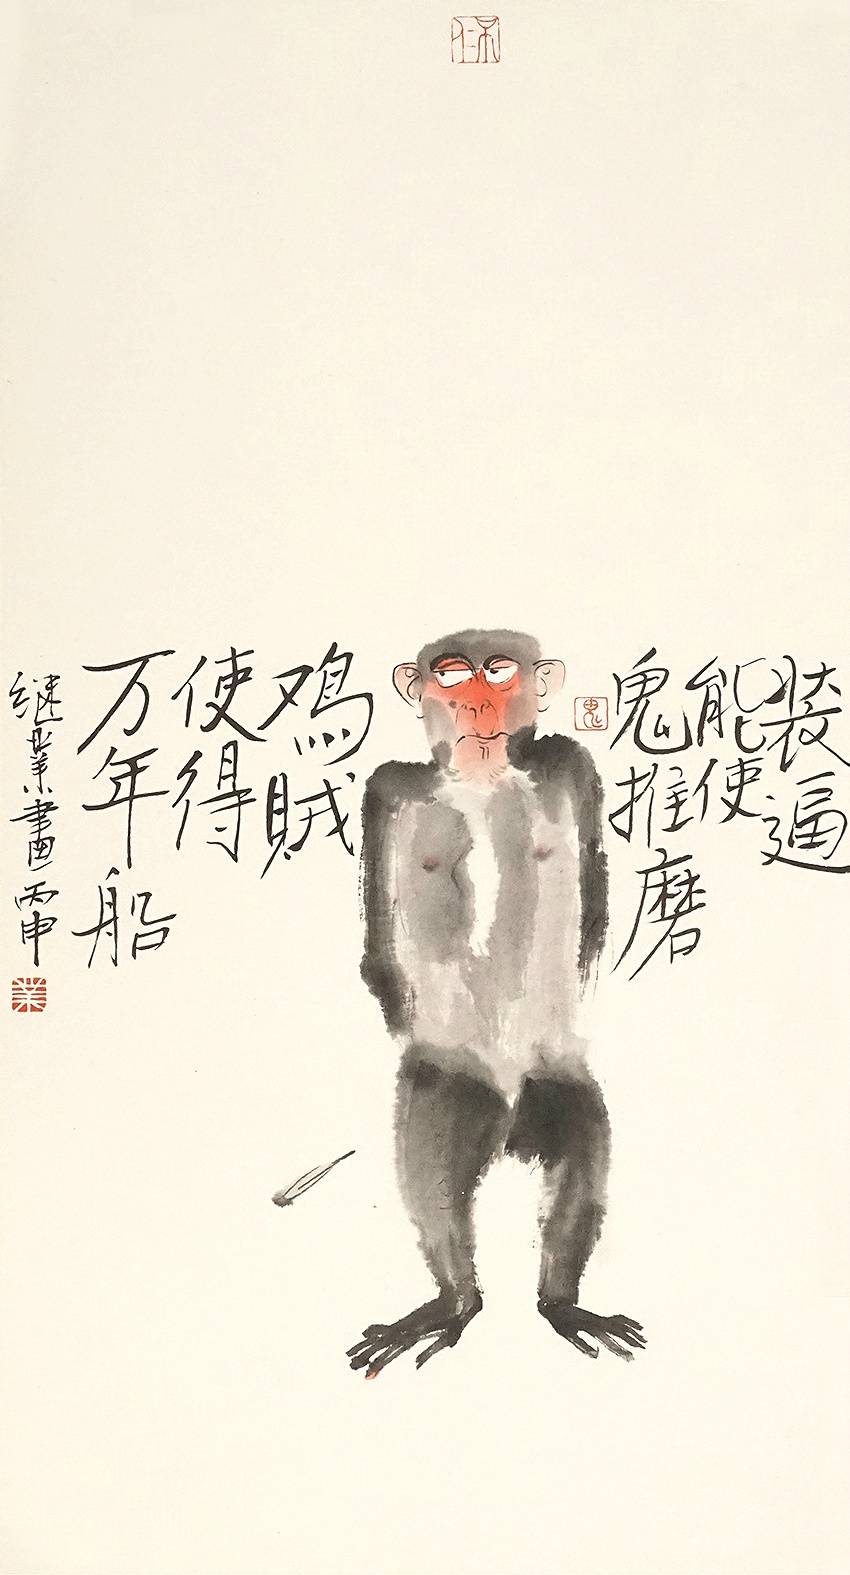 装逼
能使
鬼推磨
鸡贼
使得
万年船
继业畫丙申
鬼
業